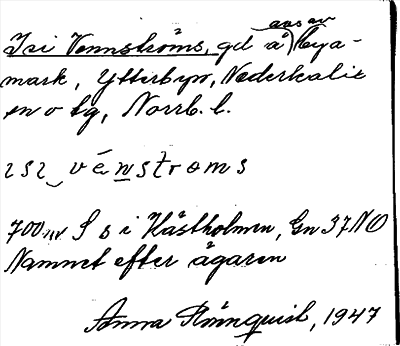 Isi Vennströms, gd å (ans av) bya-
mark, Ytterbyn, Nederkalix
sn o tg, Norrb. l.
ɪsɪ‿vén̲stroms
700 m S o i Hästholmen, Gn 37 NO
Namnet efter ägaren
Anna Rönnquist, 1947